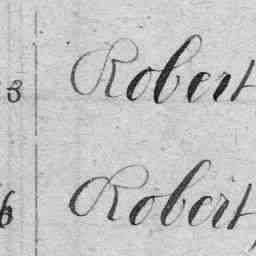 3 Robert
6 Robert,